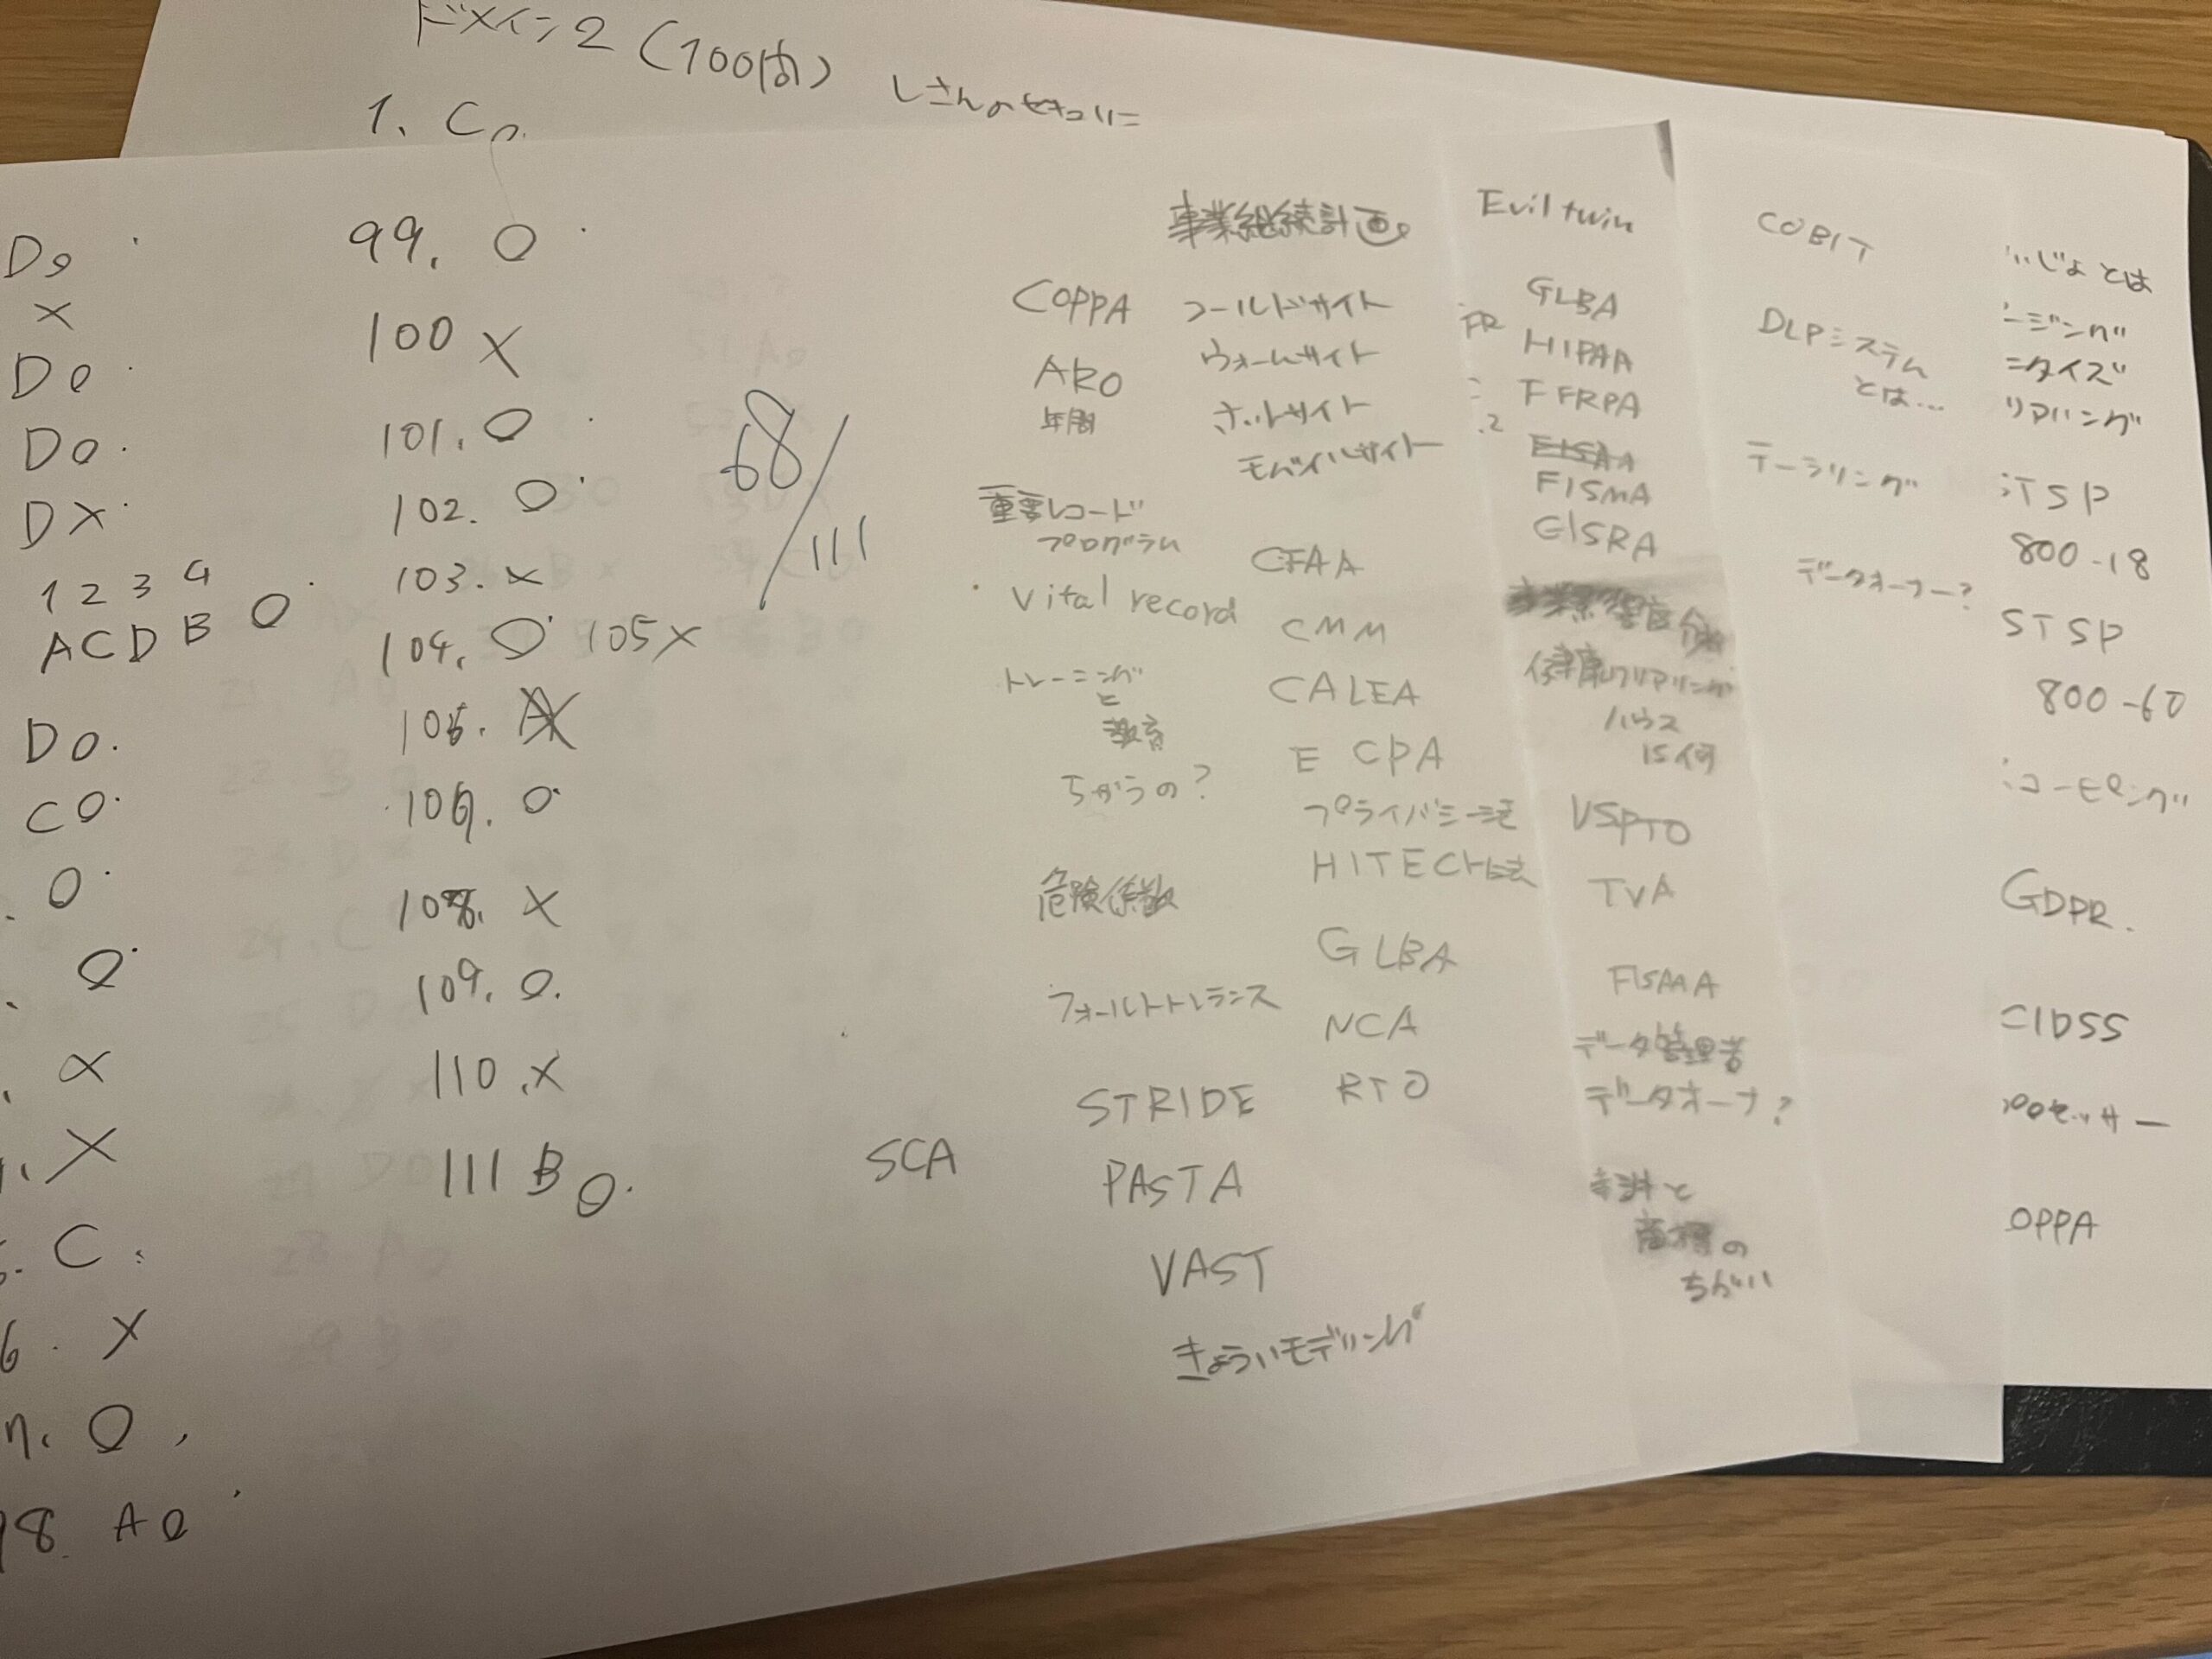 ドメイン2(100問)
しさんのセキュリニ
1. Co.
Do
X
Do
Do.
DX
1 2 3 4
A C D B O
Do.
CO.
O
O
X
X
C
6. X
O
98. A O
99. O
100 X
101. O
102. O
103. X
104. O 105 X
O
X
109. O.
110. X
111 B O.
68/111
事業継続計画
COPPA
コールドサイト
ARO
年間
ウォームサイト
ホットサイト
モバイルサイト
重要レコード
プログラム
Vital record
トレーニング
と
教育
ちがうの?
危険係数
フォールトトレランス
STRIDE
SCA
PASTA
VAST
きょういモデリング
CFAA
CMM
CALEA
E CPA
プライバシー法
HITECH法
GLBA
NCA
RTO
Evil twin
GLBA
HIPAA
FFRPA
FISMA
GISRA
健康クリアリング
ハウス
is 何
USPTO
TVA
FISMA
データ管理者
データオーナ?
商標の
ちがい
COBIT
DLPシステム
とは...
テーラリング
データオーナー?
じょとは
ージング
ニタイズ
リアリング
TSP
800-18
STSP
800-60
コーピング
GDPR.
CIDSS
ロセッサー
OPPA